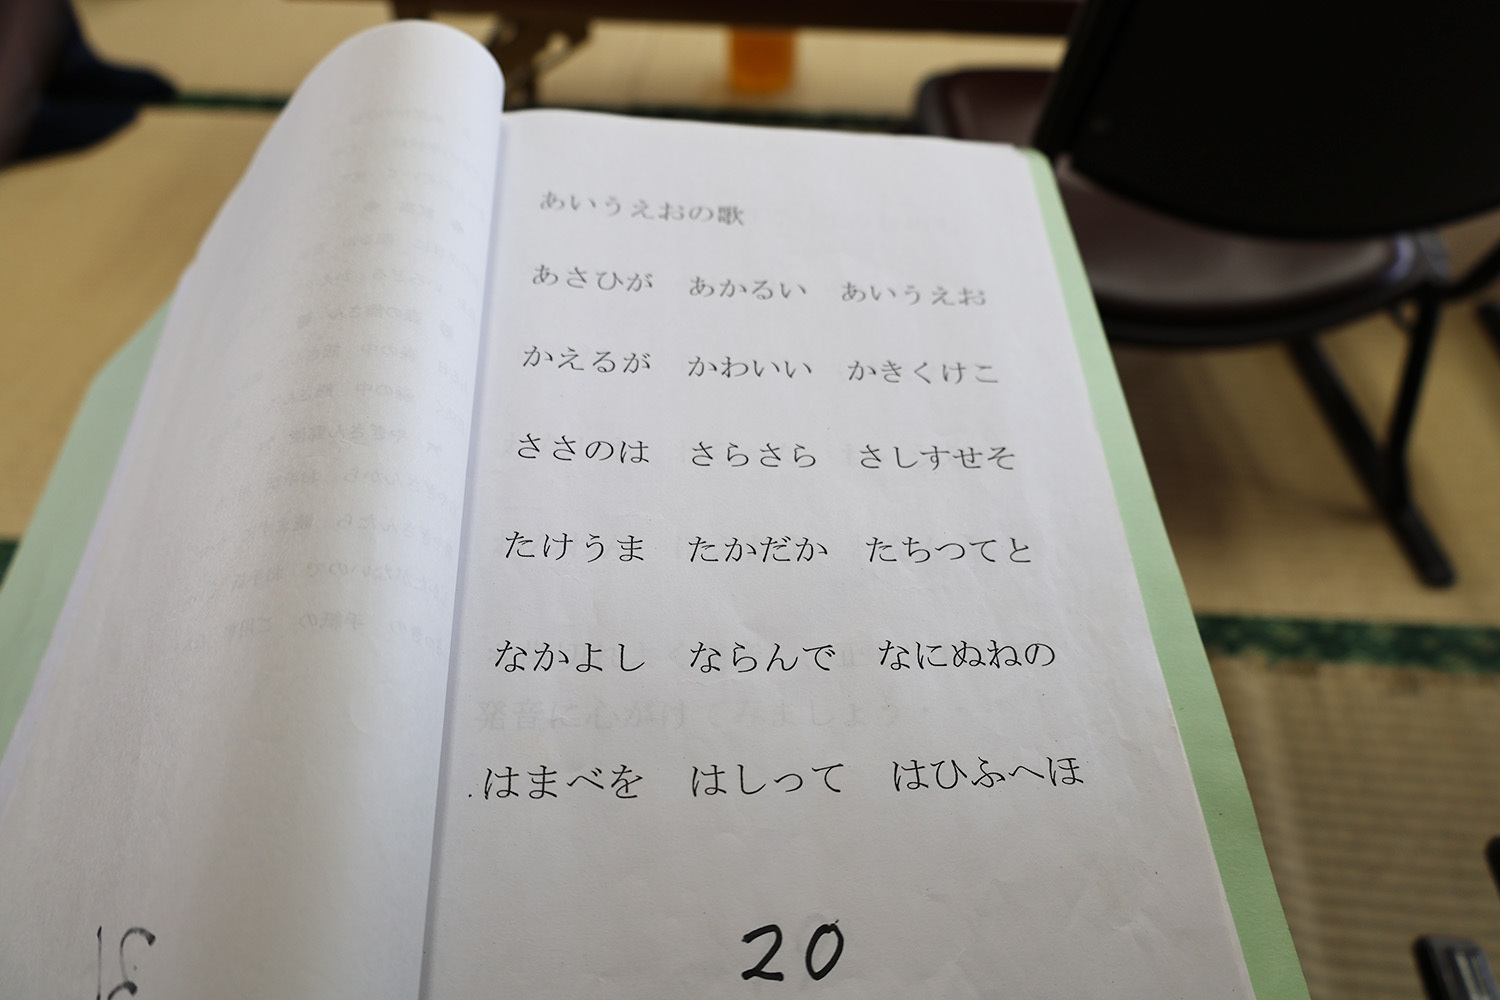 あいうえおの歌
あさひが　あかるい　あいうえお
かえるが　かわいい　かきくけこ
ささのは　さらさら　さしすせそ
たけうま　たかだか　たちつてと
なかよし　ならんで　なにぬねの
発音に心がけてみましょう・・
.はまべを　はしって　はひふへほ
20